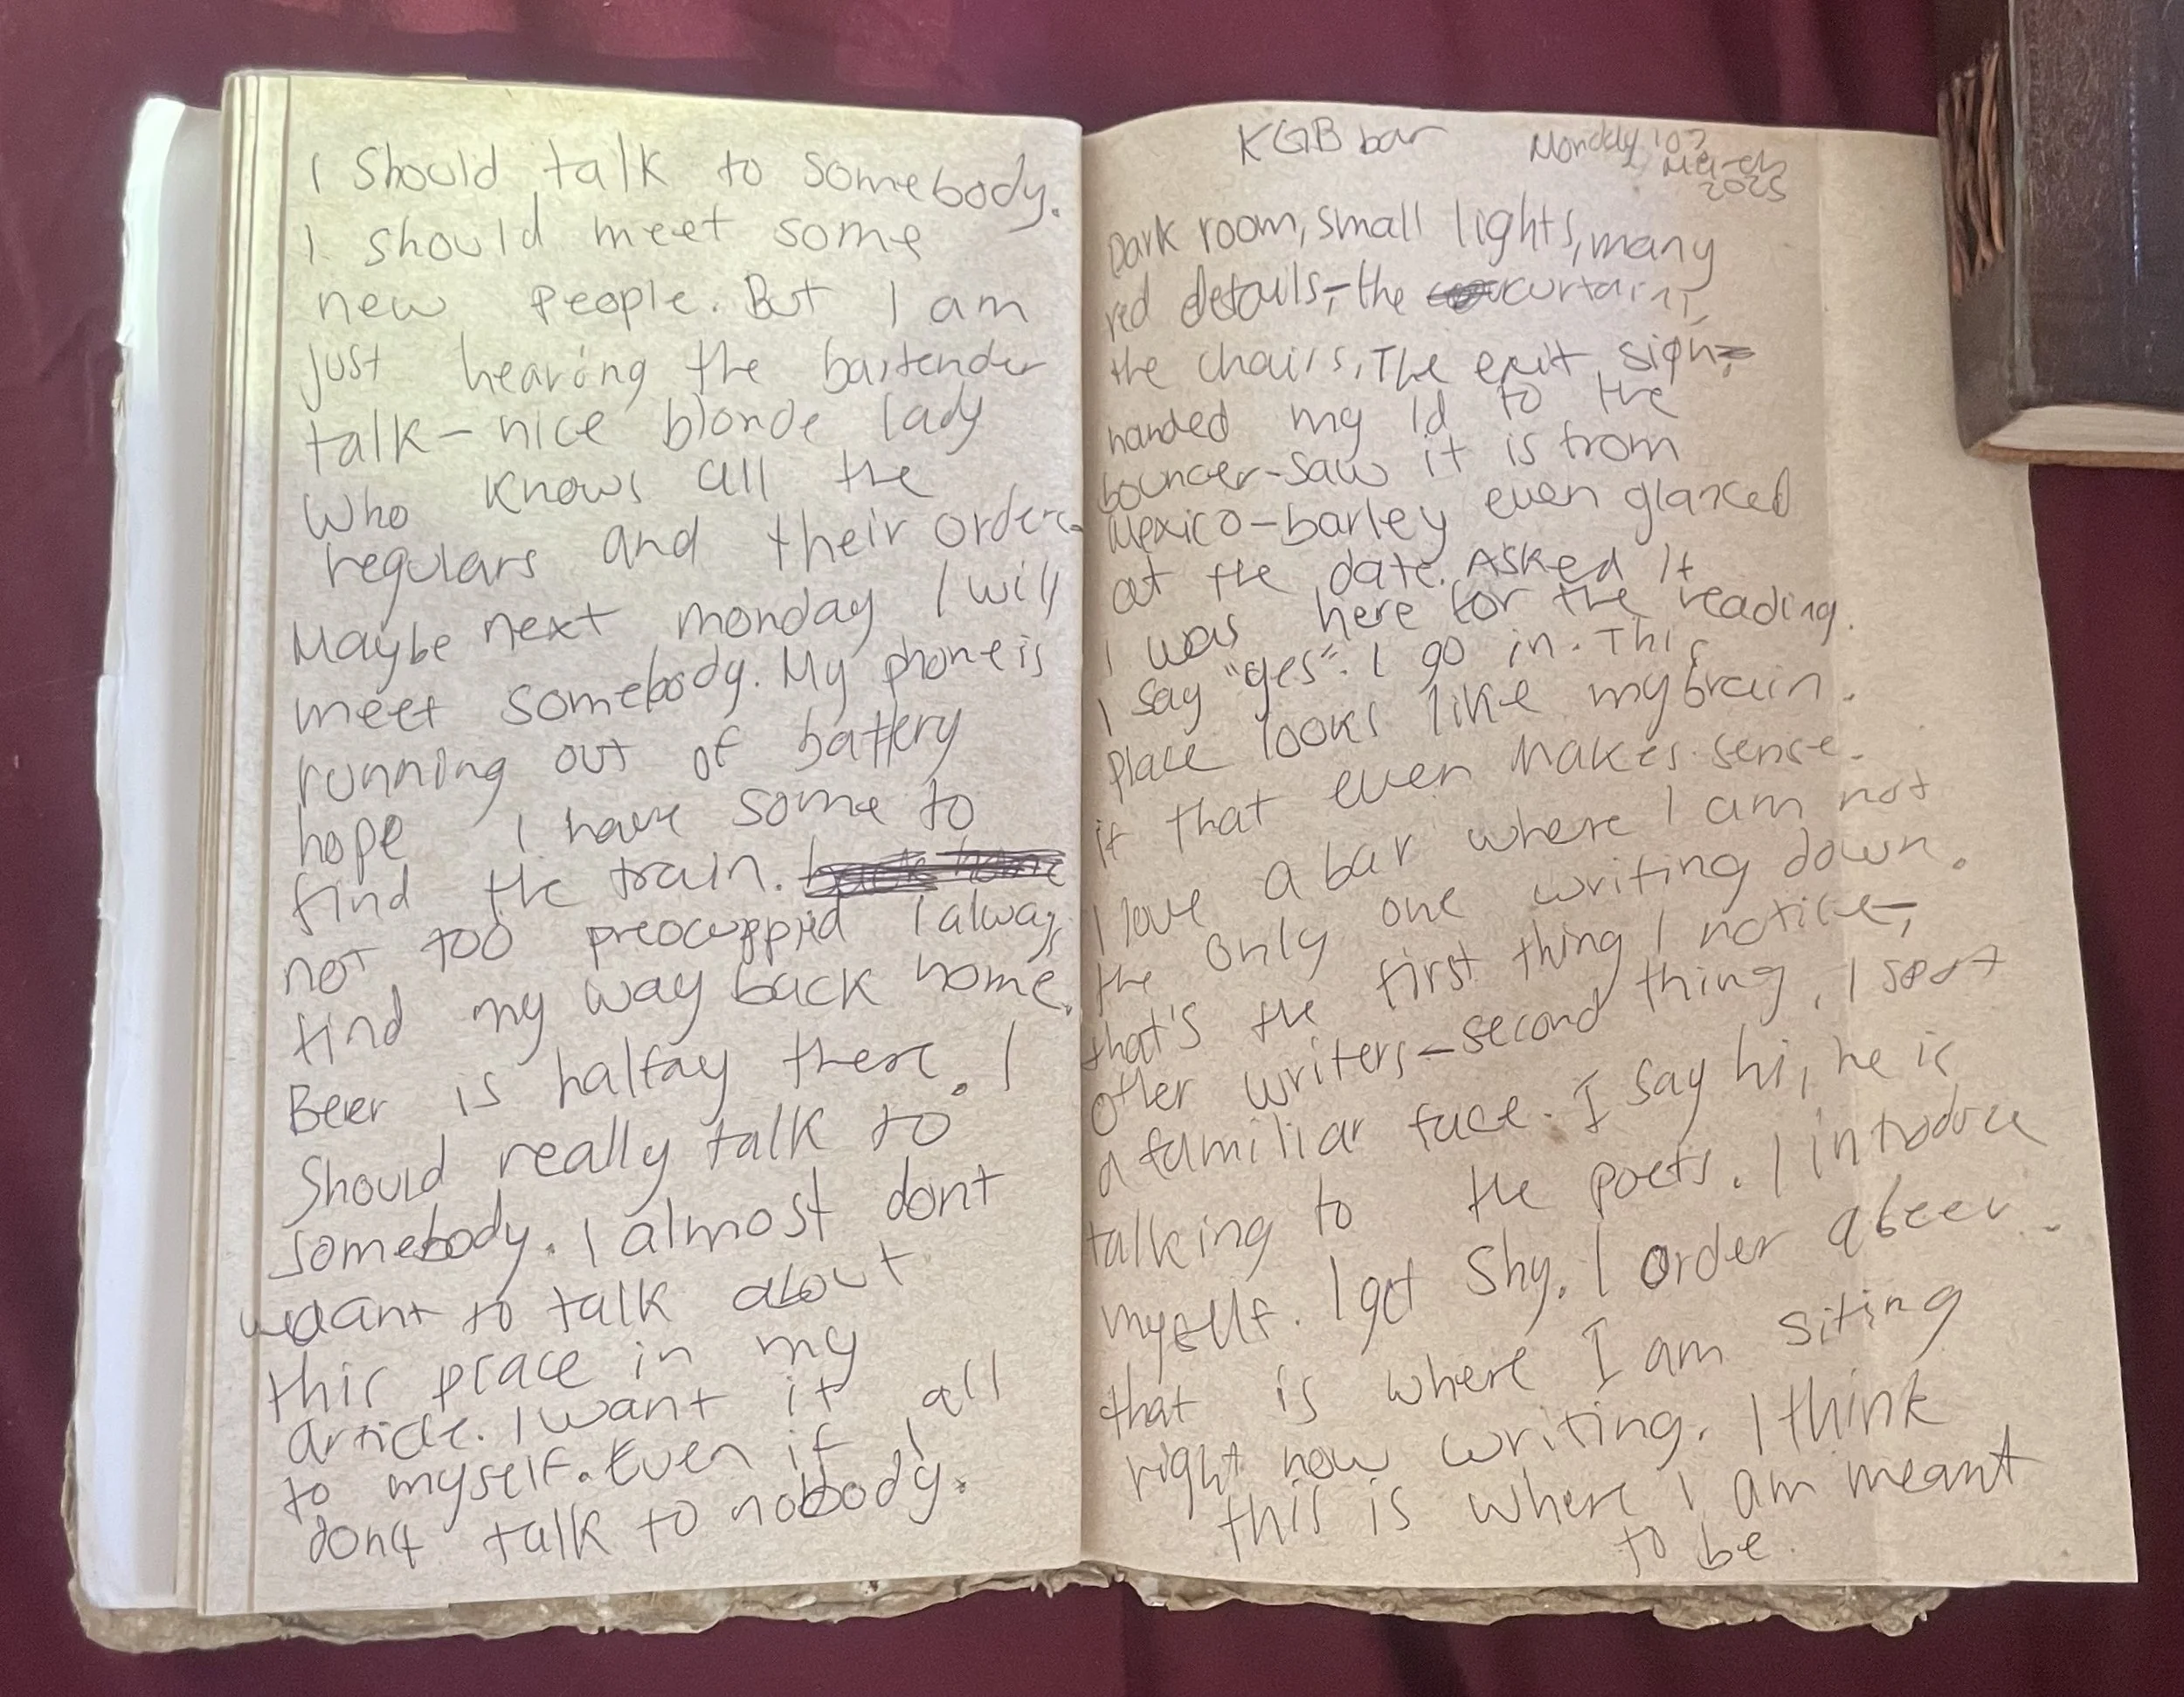 I should talk to somebody.
I should meet some
new people. But I am
just hearing the bartender
talk – nice blonde lady
who knows all the
regulars and their orders.
Maybe next monday I will
meet somebody. My phone is
running out of battery
hope I have some to
find the train. back home
not too preocuppied I always
find my way back home.
Beer is halfay there. I
Should really talk to
somebody. I almost dont
want to talk about
this place in my
article. I want it all
to myself. Even if I
dont talk to nobody.
KGB bar Monday 03
March
2025
Dark room, small lights, many
red details, – the curtains,
the chairs, The exit sign,
handed my Id to the
bouncer – saw it is from
Mexico – barley even glanced
at the date. Asked if
I was here for the reading.
I say "yes". I go in. This
place looks like my brain.
if that even makes sense.
I love a bar where I am not
the only one writing down.
that's the first thing I notice,
other writers – second thing, I spot
a familiar face. I say hi, he is
talking to the poets. I introduce
myself. I get shy. I order a beer.
that is where I am siting
right now writing. I think
this is where I am meant
to be.